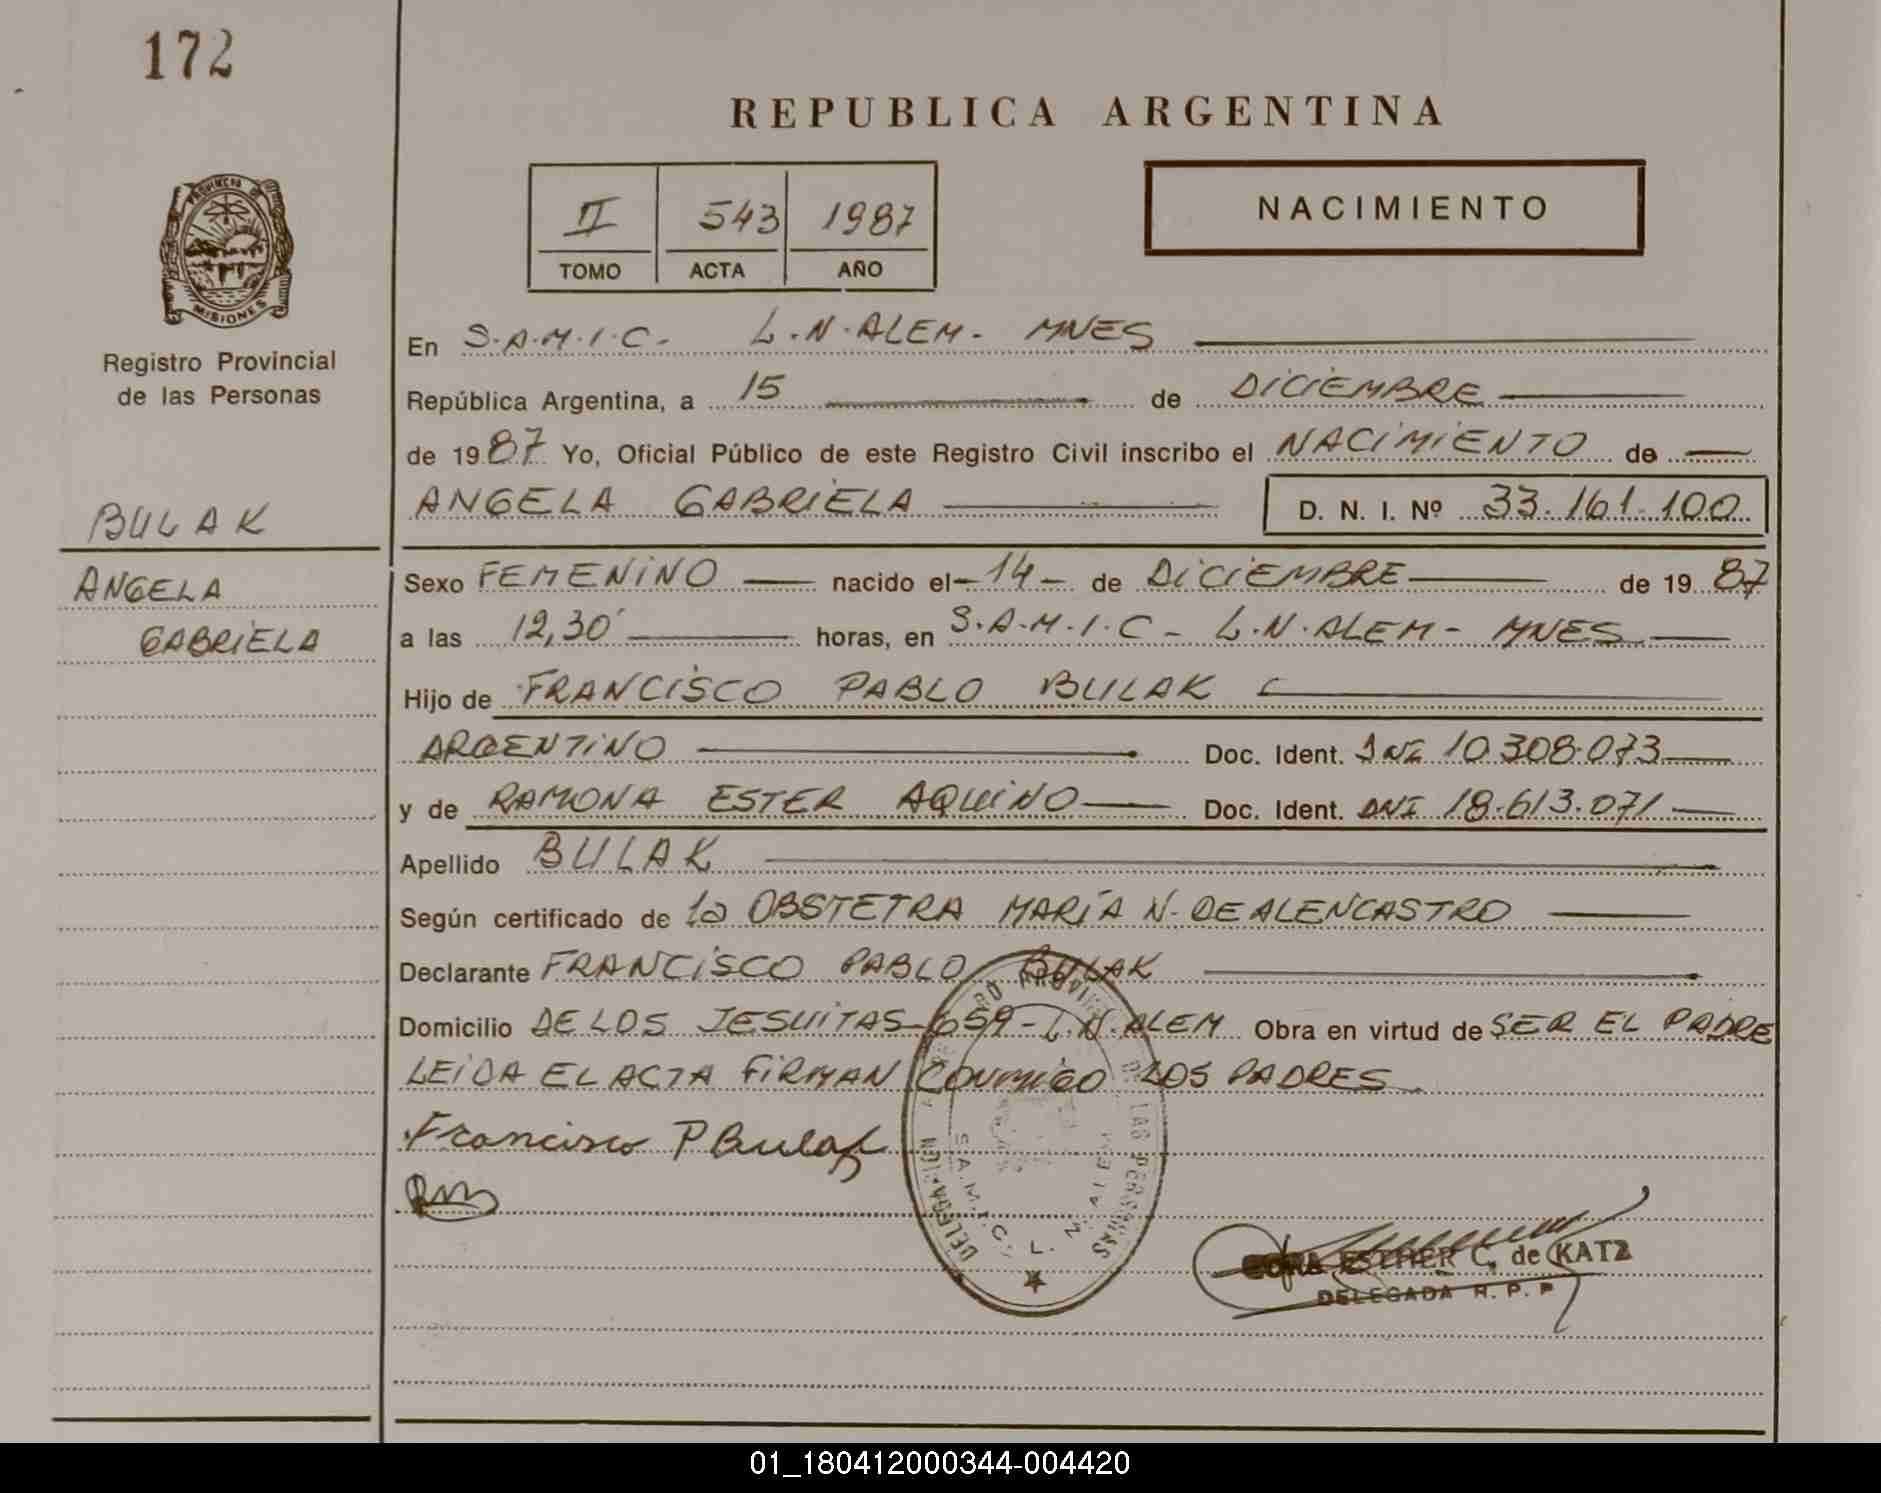 172
REPUBLICA ARGENTINA
II 543 1987
TOMO ACTA AÑO
NACIMIENTO
PROVINCIA DE
MISIONES
Registro Provincial
de las Personas
BULAK
ANGELA
GABRIELA
En S.A.M.I.C. - L.N. ALEM - MNES
República Argentina, a 15 de DICIEMBRE
de 1987 Yo, Oficial Público de este Registro Civil inscribo el NACIMIENTO de
ANGELA GABRIELA D. N. I. Nº 33.161.100
Sexo FEMENINO nacido el - 14 - de DICIEMBRE de 1987
a las 12,30 horas, en S.A.M.I.C - L.N. ALEM - MNES
Hijo de FRANCISCO PABLO BULAK
ARGENTINO Doc. Ident. DNI 10.308.073
y de RAMONA ESTER AQUINO Doc. Ident. DNI 18.613.071
Apellido BULAK
Según certificado de la OBSTETRA MARÍA N. DE ALENCASTRO
Declarante FRANCISCO PABLO BULAK
Domicilio DE LOS JESUITAS - 659 - L.N. ALEM Obra en virtud de SER EL PADRE
LEIDA EL ACTA FIRMAN CONMIGO LOS PADRES
Francisco P Bulak
S.A.M.I.C. L. N. ALEM
CORA ESTHER C. de KATZ
DELEGADA R. P. P.
01_180412000344-004420